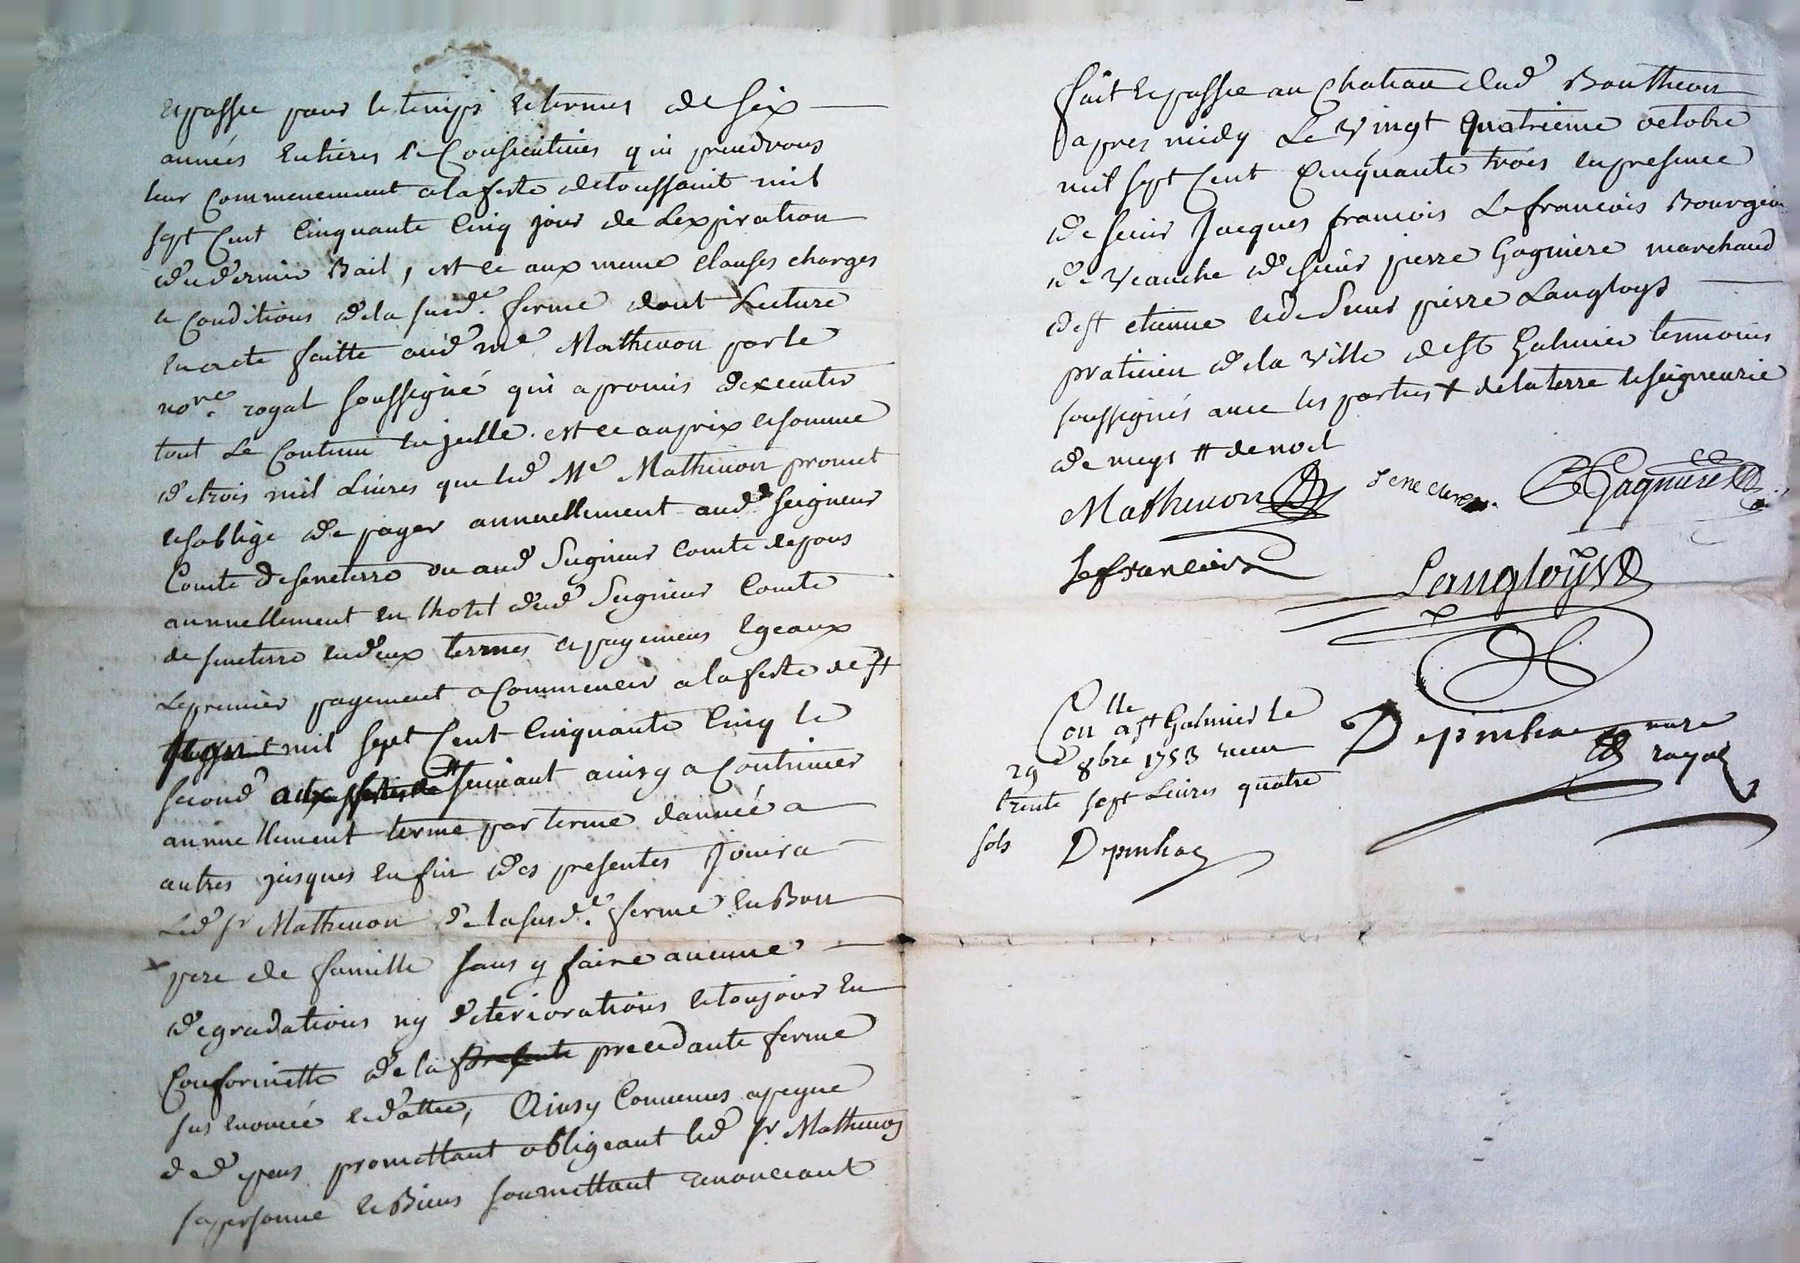 et passée pour le temps et termes de six
années entieres et Consecutives qui prendront
leur commencement a la feste de toussaint mil
sept Cent Cinquante Cinq jour de Lexpiration
du dernier Bail, et ce aux meme clauses charges
et Conditions de la susde. ferme dont Lecture
en a ete faitte aud me Mathevon par le
nore. royal soussigné qui a promis dexecuter
tout Le Contenu en jcelle. et ce au prix et somme
de trois mil Livres que led Me Mathevon promet
et soblige de payer annuellement aud Seigneur
Comte de seneterre ou aud Seigneur Comte de pons
annuellement en lhotel dud Seigneur Comte
de seneterre en deux termes et payemens egeaux
Le premier payement a Commencer a la feste de st
mil sept Cent Cinquante Cinq le
second # suivant ainsy a Continuer
annuellement terme par terme dannée a
autres jusques en fin des presentes Jouira
Led sr Mathevon de la susde. ferme en Bon
pere de famille sans y faire aucune
degradations ny deteriorations et toujour en
Conformitté de la presente precedante ferme
sus enoncée et dattée, Ainsy Convenus a peyne
de d promettant obligeant led sr Mathevon
sa personne et Biens soumettant renonceant
fait et passée au Chateau dud Boutheon
apres midy Le Vingt quatrieme octobre
mil sept Cent Cinquante trois en presence
de sieur Jacques francois Lefrancois Bourgeois
de Veauche de sieur pierre Gagniere marchand
de st etienne et de Sieur pierre Langloys
praticien de la Ville de st Galmier temoins
soussignés avec les parties + de la terre et seigneurie
de meys # de noel
Mathevon Seneterre. Gagniere
Lefrancois Langloys
Conlle a st Galmier le
29e 8bre 1753 receu
trente sept Livres quatre
sols Depinhac
Depinhac nore royal